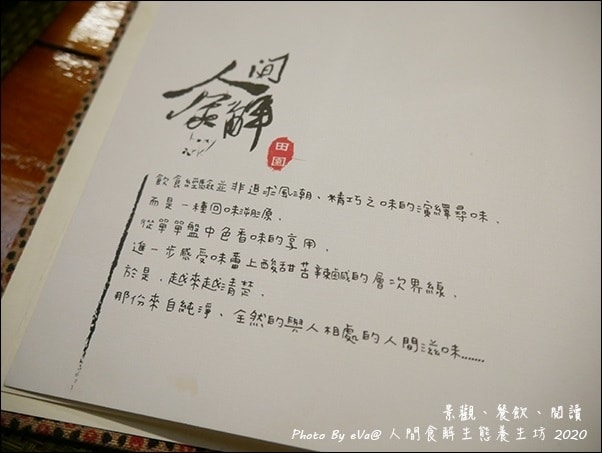 人間
食解
田園
飲食經驗並非追求風潮、精巧之味的演繹尋味，
而是一種回味溯原，
從單單盤中色香味的享用，
進一步感受味蕾上酸甜苦辣鹹的層次界線，
於是，越來越清楚，
那份來自純淨、全然的與人相處的人間滋味……
景觀、餐飲、閱讀
Photo By eVa@ 人間食解生態養生坊 2020